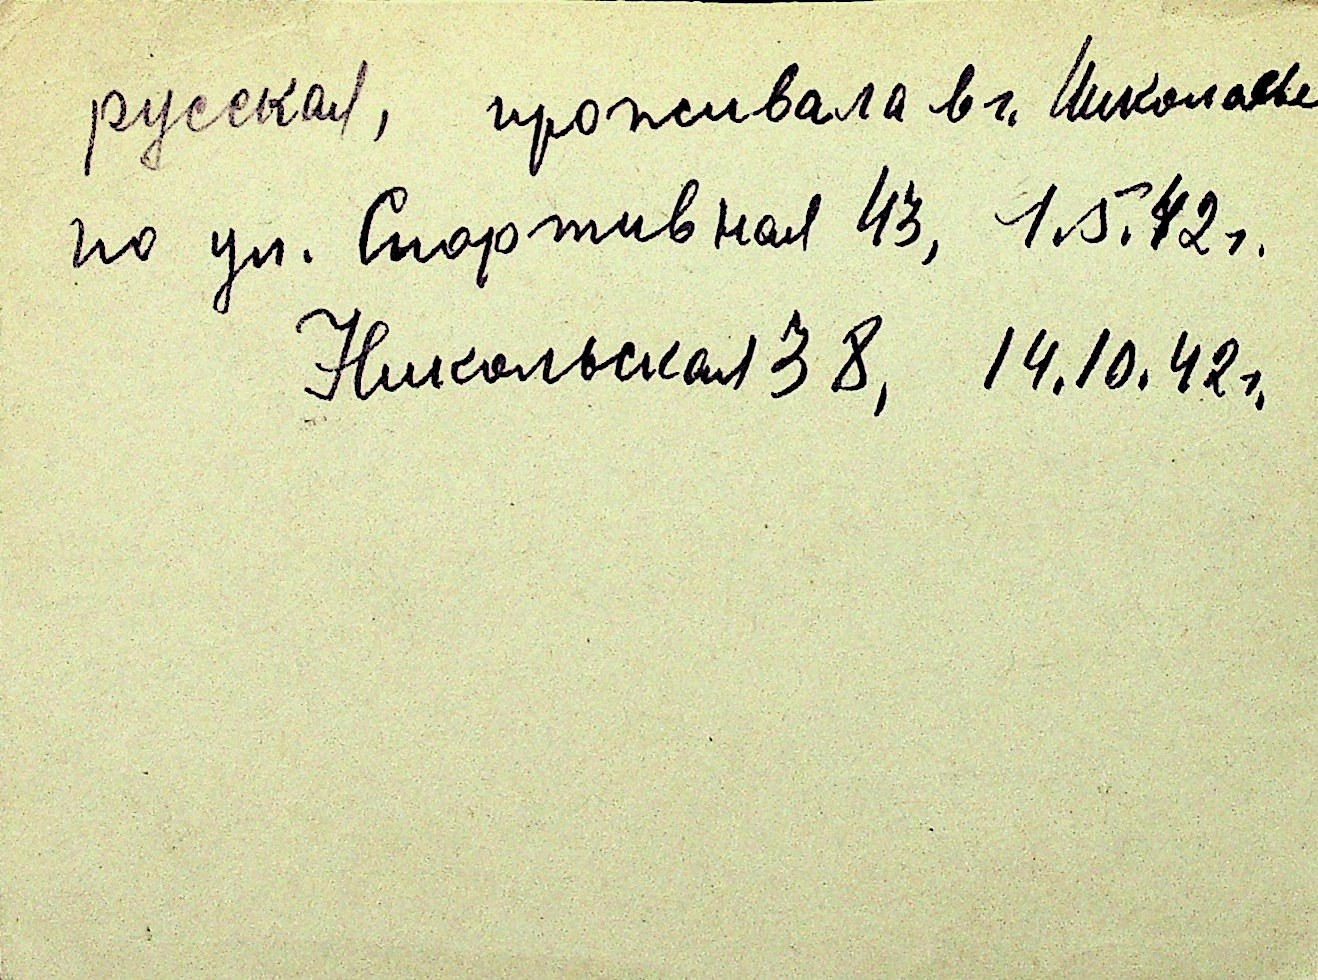 русская, проживала в г. Николаеве
по ул. Спортивная 43, 1.5.42 г.
Никольская 38, 14.10.42 г.